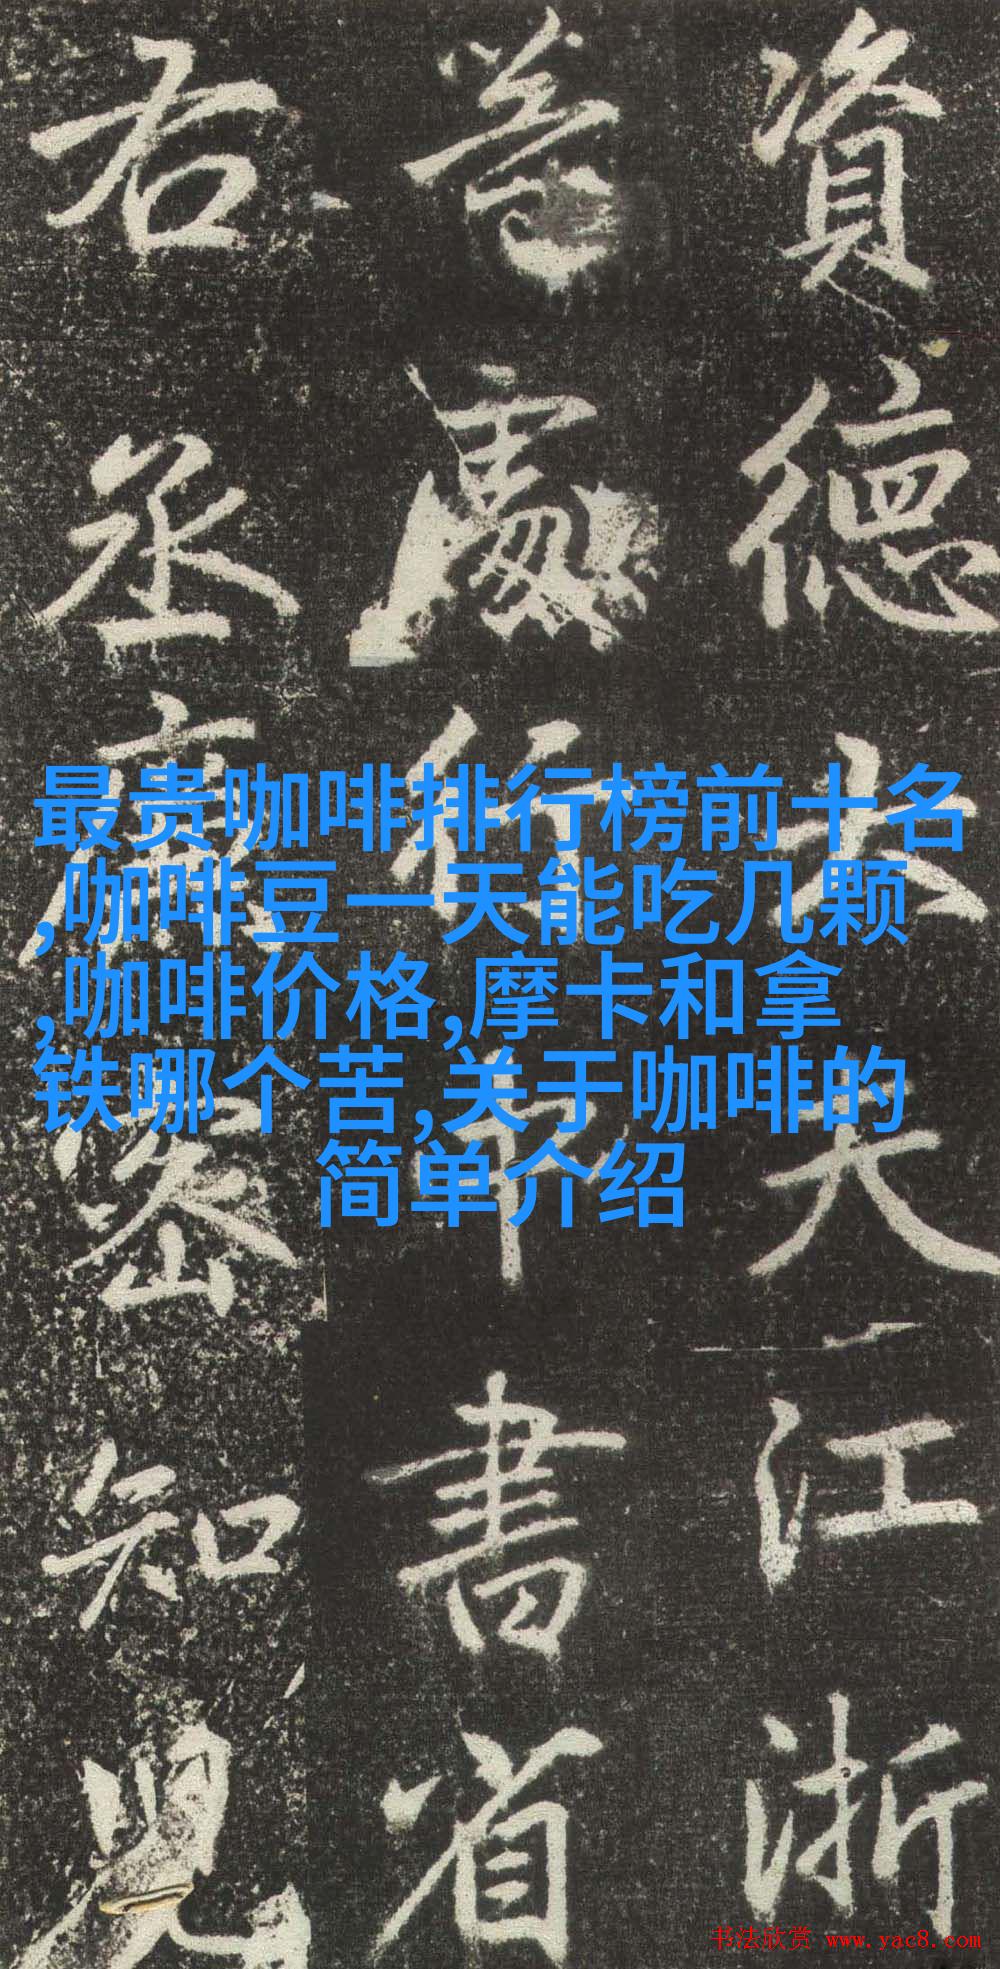 資德大夫江浙
等處行中書省
右丞廉密知兒
最贵咖啡排行榜前十名
,咖啡豆一天能吃几颗
,咖啡价格,摩卡和拿
铁哪个苦,关于咖啡的
简单介绍
书法欣赏 www.yac8.com